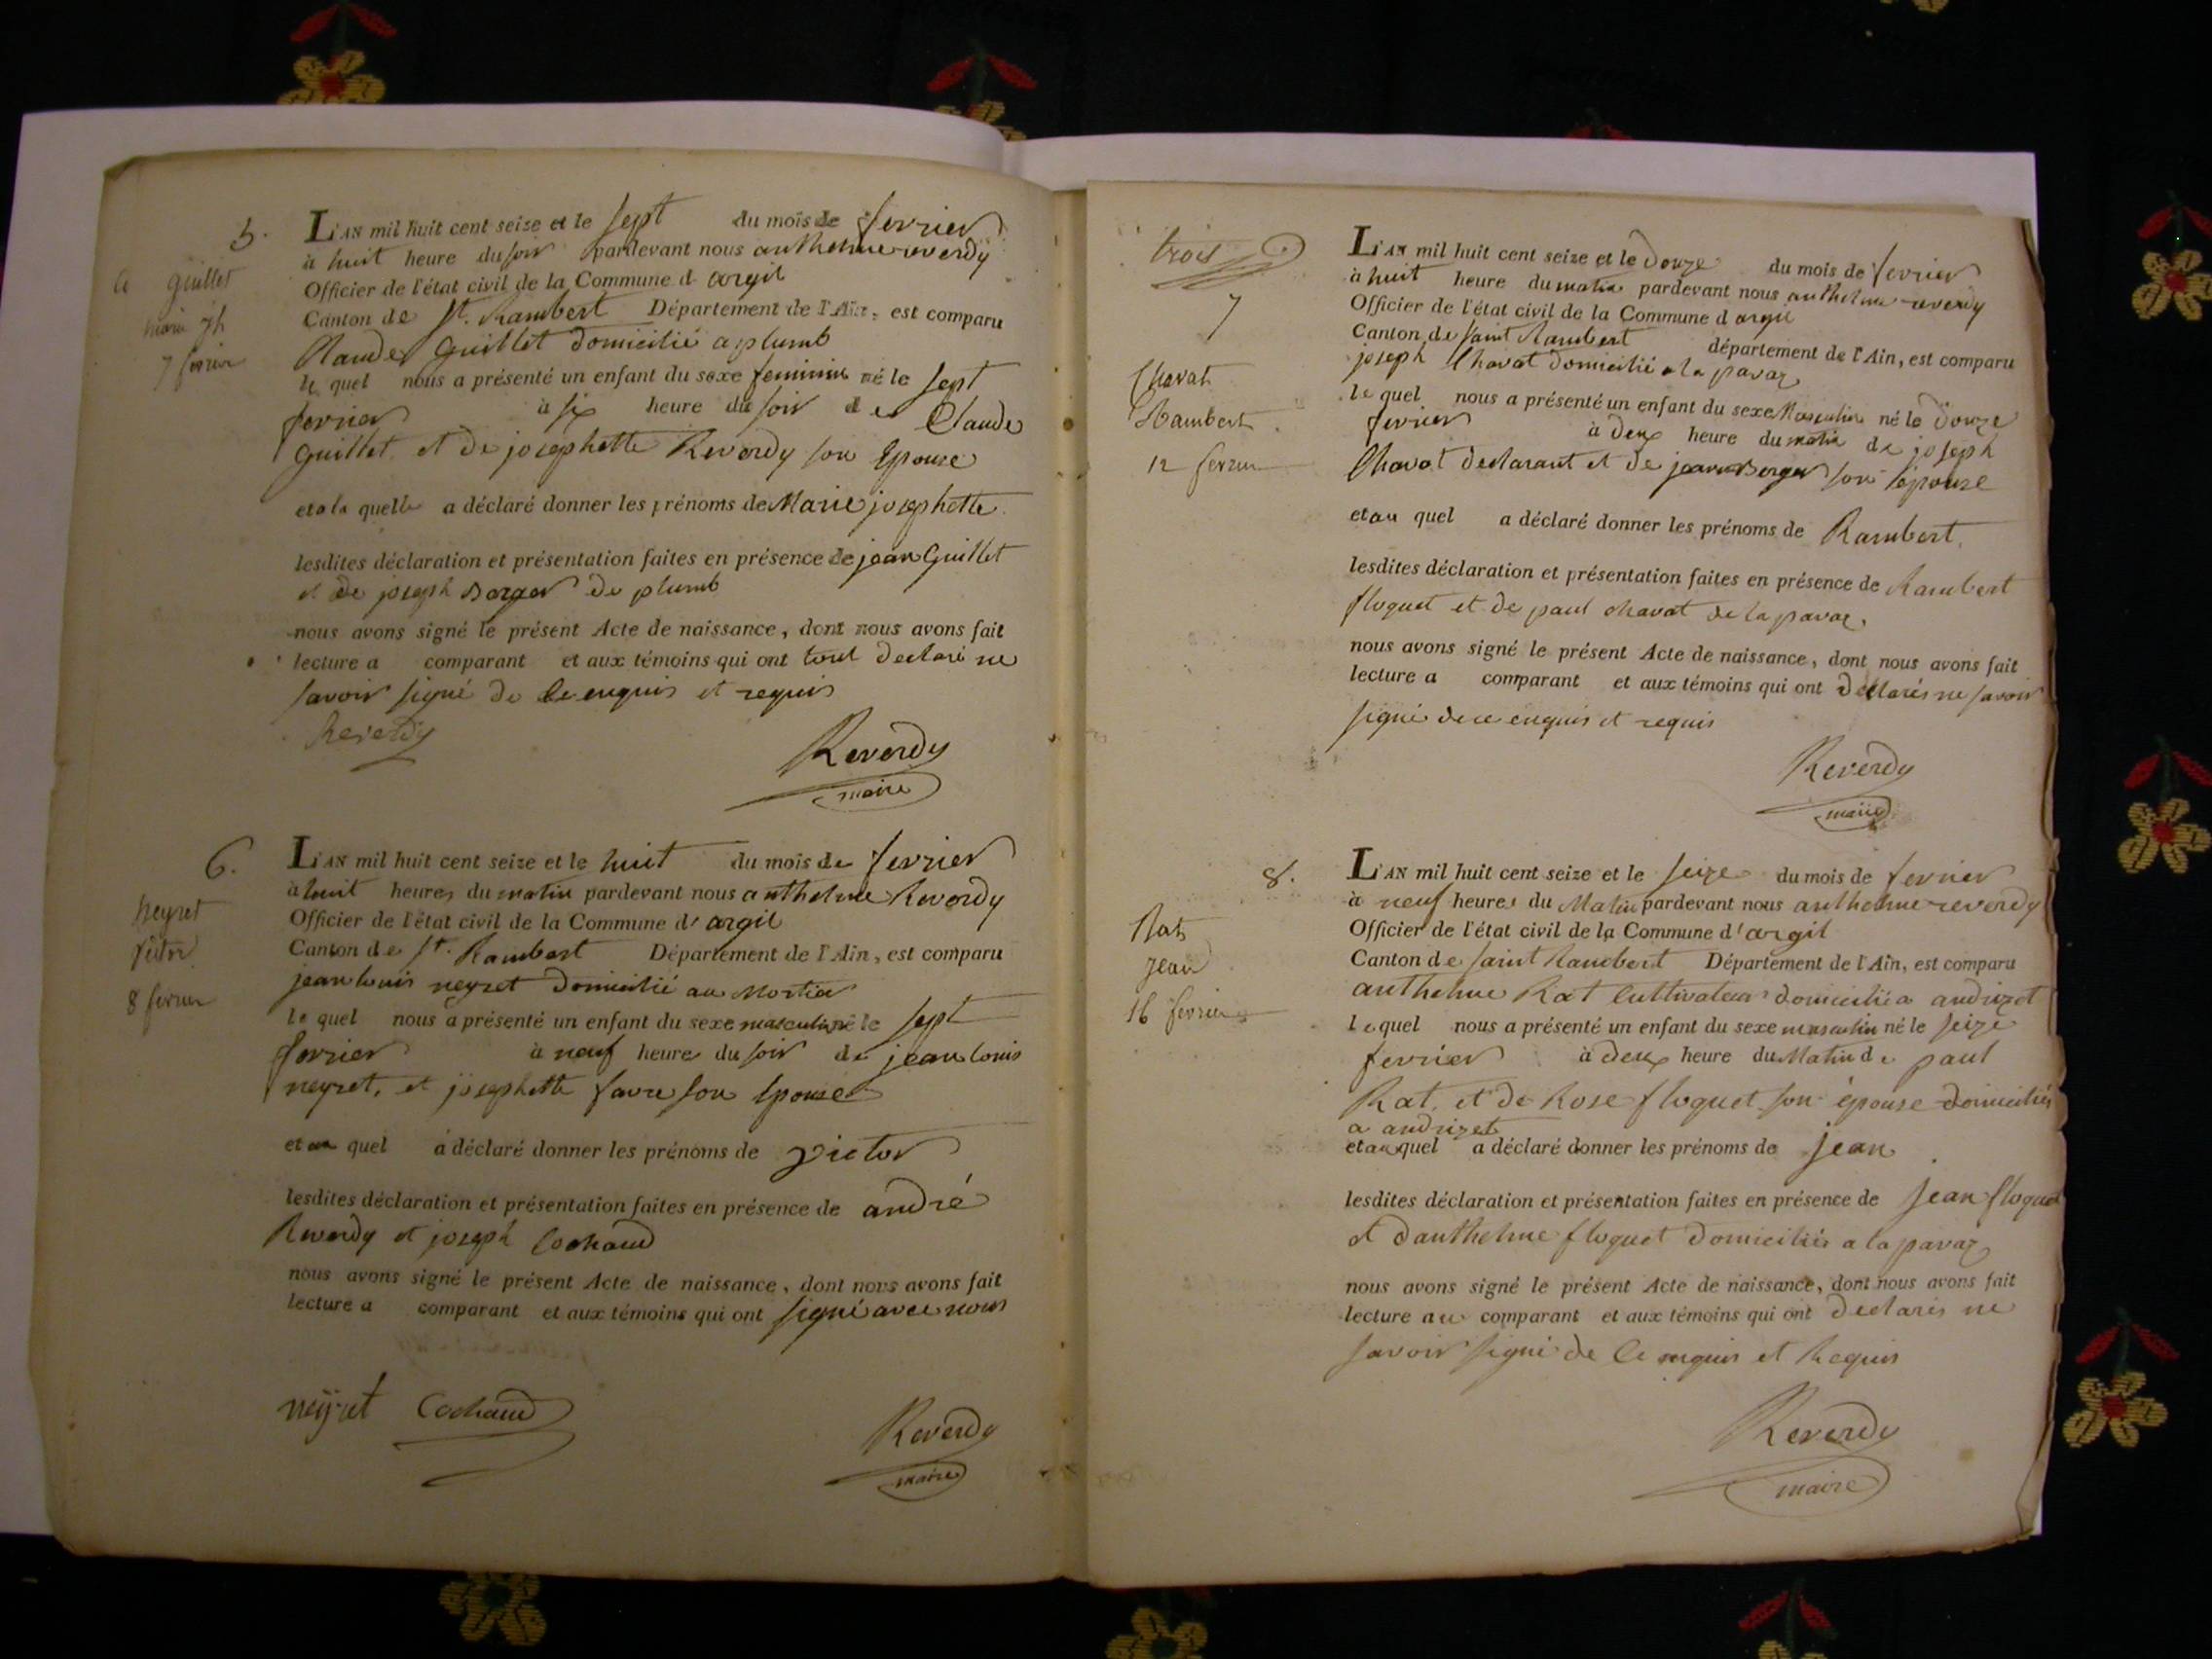 5.
guillet
marie jh
7 fevrier
L'AN mil huit cent seize et le sept du mois de fevrier
à huit heure du soir pardevant nous anthelme reverdy
Officier de l'état civil de la Commune d argil
Canton de St. Rambert Département de l'Ain, est comparu
Claude Guillet domicilié a plumb
le quel nous a présenté un enfant du sexe feminin né le sept
fevrier à six heure du soir de Claude
Guillet et de josephette Reverdy son Epouse
et a la quelle a déclaré donner les prénoms de Marie josephette
lesdites déclaration et présentation faites en présence de jean Guillet
et de joseph Berger de plumb
nous avons signé le présent Acte de naissance, dont nous avons fait
lecture a comparant et aux témoins qui ont tout declaré ne
savoir signé de Ce enquis et requis
Reverdy
Reverdy
maire
6.
neyret
victor
8 fevrier
L'AN mil huit cent seize et le huit du mois de fevrier
à huit heures du matin pardevant nous anthelme Reverdy
Officier de l'état civil de la Commune d' argil
Canton de St. Rambert Département de l'Ain, est comparu
jean louis neyret domicilié au Mortier
le quel nous a présenté un enfant du sexe masculin né le sept
fevrier à neuf heures du soir de jean louis
neyret, et josephette favre son Epouse
et au quel a déclaré donner les prénoms de victor
lesdites déclaration et présentation faites en présence de andré
Reverdy et joseph Cochaud
nous avons signé le présent Acte de naissance, dont nous avons fait
lecture a comparant et aux témoins qui ont signé avec nous
neyret Cochaud
Reverdy
maire
trois
7
Chavat
Rambert
12 fevrier
L'AN mil huit cent seize et le Douze du mois de fevrier
à huit heure du matin pardevant nous anthelme reverdy
Officier de l'état civil de la Commune d argil
Canton de saint Rambert département de l'Ain, est comparu
joseph Chavat domicilié a la pavaz
le quel nous a présenté un enfant du sexe Masculin né le Douze
fevrier à deux heure du matin de joseph
Chavat declarant et de jeanne Berger son épouse
et au quel a déclaré donner les prénoms de Rambert
lesdites déclaration et présentation faites en présence de Rambert
floquet et de paul chavat de la pavaz
nous avons signé le présent Acte de naissance, dont nous avons fait
lecture a comparant et aux témoins qui ont declarés ne savoir
signé de ce enquis et requis
Reverdy
maire
8.
Rat
jean
16 fevrier
L'AN mil huit cent seize et le seize du mois de fevrier
à neuf heures du Matin pardevant nous anthelme reverdy
Officier de l'état civil de la Commune d' argil
Canton de saint Rambert Département de l'Ain, est comparu
anthelme Rat Cultivateur domicilié a andrizet
le quel nous a présenté un enfant du sexe masculin né le seize
fevrier à deux heure du Matin de paul
Rat, et de Rose floquet son épouse domiciliés
a andrizet
et au quel a déclaré donner les prénoms de jean
lesdites déclaration et présentation faites en présence de jean floquet
et d'anthelme floquet domiciliés a la pavaz
nous avons signé le présent Acte de naissance, dont nous avons fait
lecture au comparant et aux témoins qui ont declarés ne
savoir signé de Ce enquis et Requis
Reverdy
maire